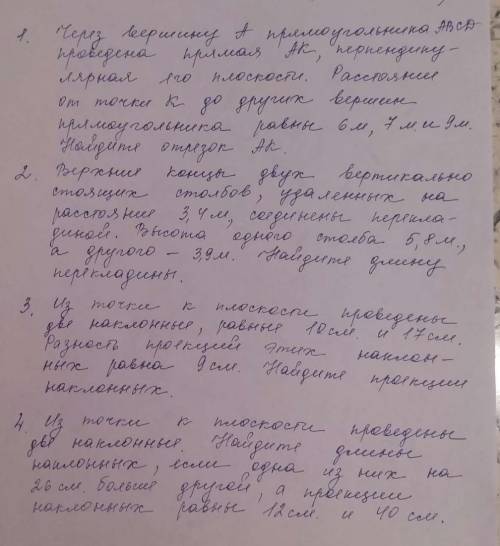 1. Через вершину А прямоугольника ABCD
проведена прямая АК, перпендику-
лярная его плоскости. Расстояния
от точки К до других вершин
прямоугольника равны 6м, 7м. и 9м.
Найдите отрезок АК.
2. Верхние концы двух вертикально
стоящих столбов, удаленных на
расстояние 3,4м, соединены перекла-
диной. Высота одного столба 5,8м.,
а другого - 3,9м. Найдите длину
перекладины.
3. Из точки к плоскости проведены
две наклонные, равные 10см. и 17см.
Разность проекций этих наклон-
ных равна 9см. Найдите проекции
наклонных.
4. Из точки к плоскости проведены
две наклонные. Найдите длины
наклонных, если одна из них на
26см. больше другой, а проекции
наклонных равны 12см. и 40см.